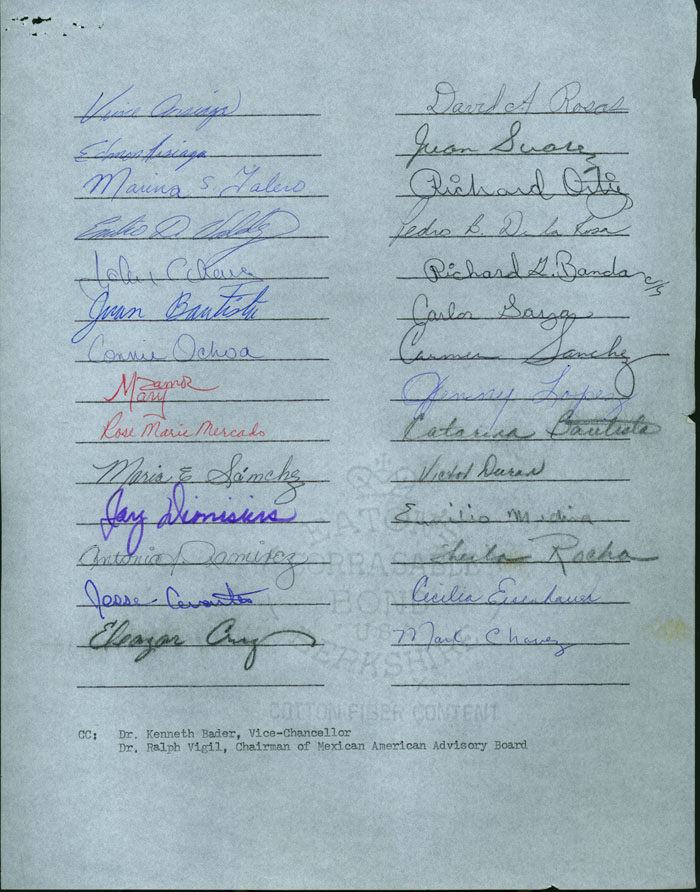 David A Rosas
Juan Suarez
Marina S. Talero
Richard Ortiz
Pedro L. De La Rosa
Richard G. Banda c/s
Juan Bautista
Carlos Garza
Connie Ochoa
Carmen Sanchez
Mary Zamor
Jenny Lopez
Rose Marie Mercado
Catarina Bautista
Maria E Sánchez
Victor Duran
Jay Dionisius
Emilio Medina
Antonia Ramirez
Sheila Rocha
Jesse Cervantes
Cecilia Eisenhauer
Eleazar Cruz
Mark Chavez
EATON'S
CORRASABLE
BOND
U.S.
BERKSHIRE
COTTON FIBER CONTENT
CC: Dr. Kenneth Bader, Vice-Chancellor
Dr. Ralph Vigil, Chairman of Mexican American Advisory Board